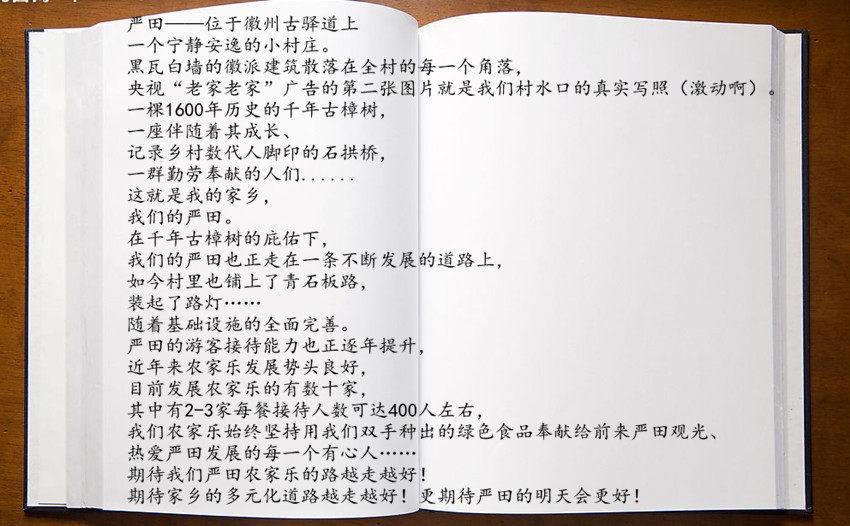 严田——位于徽州古驿道上
一个宁静安逸的小村庄。
黑瓦白墙的徽派建筑散落在全村的每一个角落，
央视“老家老家”广告的第二张图片就是我们村水口的真实写照（激动啊）。
一棵1600年历史的千年古樟树，
一座伴随着其成长、
记录乡村数代人脚印的石拱桥，
一群勤劳奉献的人们......
这就是我的家乡，
我们的严田。
在千年古樟树的庇佑下，
我们的严田也正走在一条不断发展的道路上，
如今村里也铺上了青石板路，
装起了路灯……
随着基础设施的全面完善。
严田的游客接待能力也正逐年提升，
近年来农家乐发展势头良好，
目前发展农家乐的有数十家，
其中有2-3家每餐接待人数可达400人左右，
我们农家乐始终坚持用我们双手种出的绿色食品奉献给前来严田观光、
热爱严田发展的每一个有心人……
期待我们严田农家乐的路越走越好！
期待家乡的多元化道路越走越好！更期待严田的明天会更好！